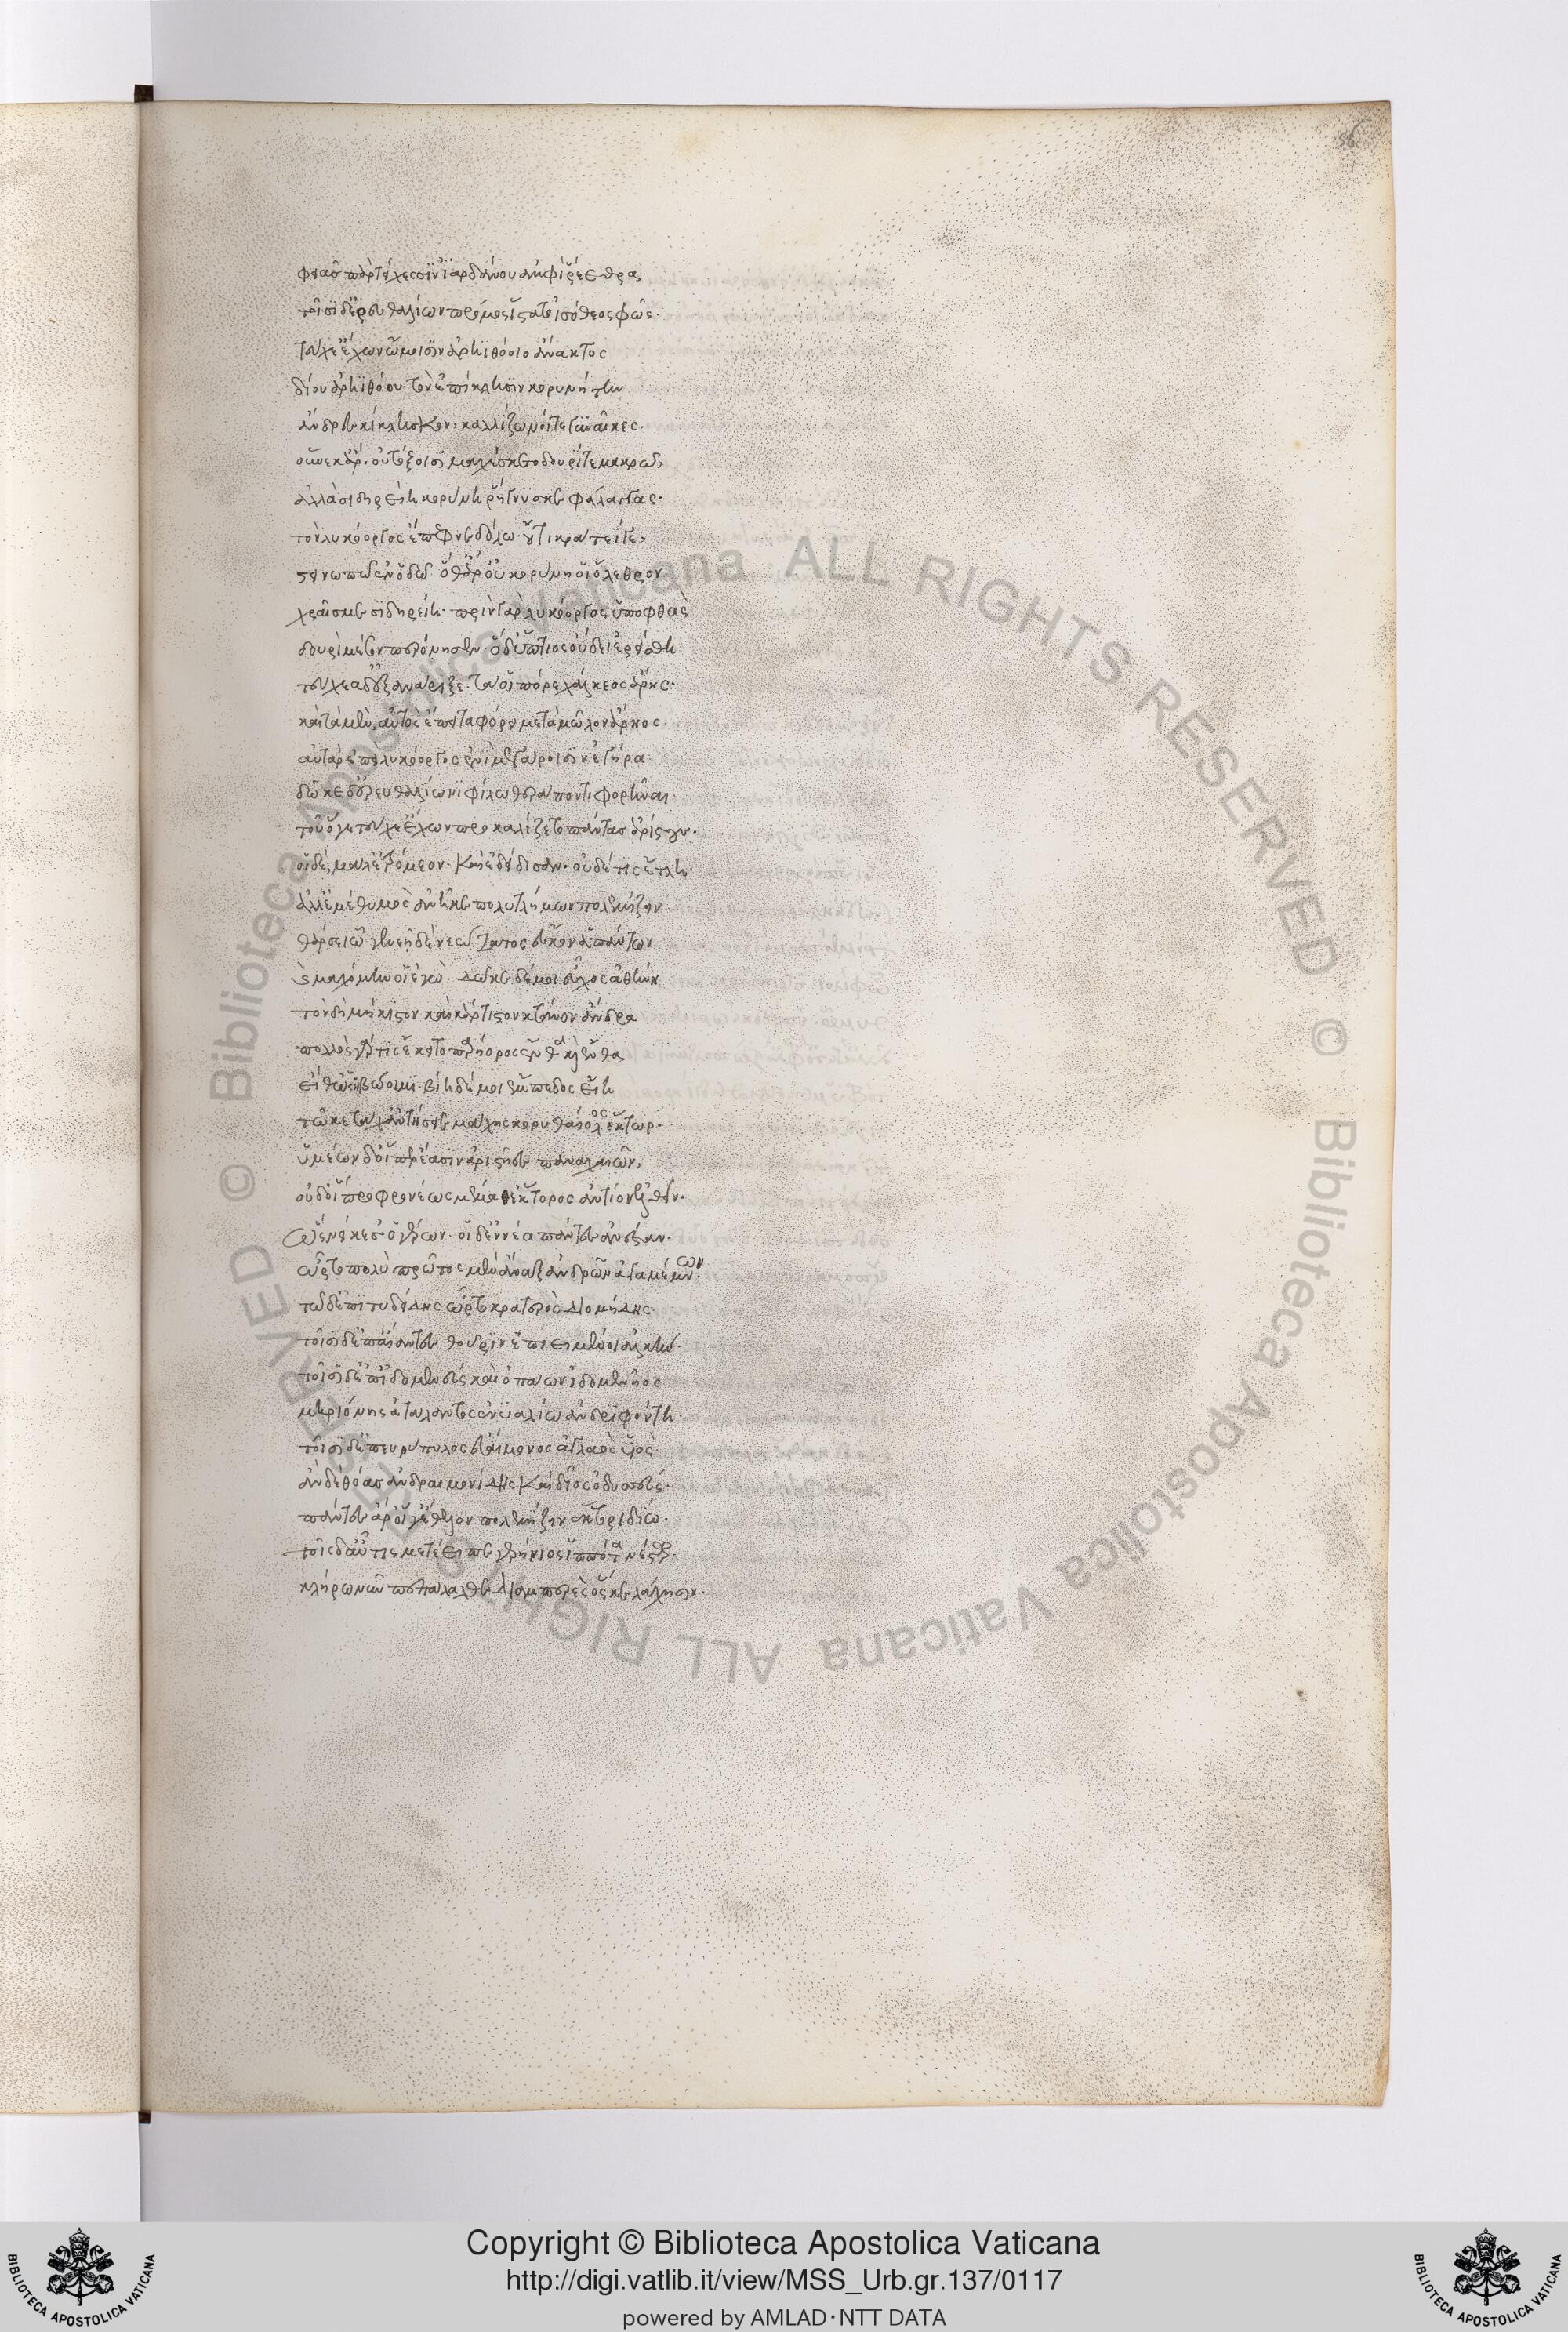 56
φειᾶς πὰρ τείχεσσιν ϊαρδάνου ἀμφὶ ῥέεθρα
τοῖσι δ' ἐρευθαλίων πρόμος ἵστατο ἰσόθεος φώς·
τεύχε' ἔχων ὤμοισιν ἀρηϊθόοιο ἄνακτος
δίου ἀρηϊθόου· τὸν ἐπίκλησιν κορυνήτην
ἄνδρες κίκλησκον· καλλίζωνοί τε γυναῖκες·
οὕνεκ' ἄρ' οὐ τόξοισι μαχέσκετο δουρί τε μακρῷ,
ἀλλὰ σιδηρείη κορύνη ῥήγνυσκε φάλαγγας·
τὸν λυκόοργος ἔπεφνε δόλω· οὔτι κράτεΐ γε,
στεινωπῷ ἐν ὁδῷ· ὅθ' ἄρ' οὐ κορύνη οἱ ὄλεθρον
χραῖσμε σιδηρείη· πρὶν γὰρ λυκόοργος ὑποφθὰς
δουρὶ μέσον περόνησεν· ὁ δ' ὕπτιος οὔδει ἐρείσθη
τεύχεα δ' ἐξενάριξε· τά οἱ πόρε χάλκεος ἄρης·
καὶ τὰ μὲν αὐτὸς ἔπειτα φόρει μετὰ μῶλον ἄρηος·
αὐτὰρ ἐπεὶ λυκόοργος ἐνὶ μεγάροισιν ἐγήρα·
δῶκε δ' ἐρευθαλίωνι φίλω θεράποντι φορῆναι·
τοῦ ὅγε τεύχε' ἔχων προκαλίζετο πάντας ἀρίστους·
οἱ δὲ μάλ' ἐτρόμεον· καὶ ἐδείδισαν· οὐδέ τις ἔτλη·
ἀλλ' ἐμὲ θυμὸς ἀνῆκε πολυτλήμων πολεμίζειν
θάρσεϊ ᾧ γενεῇ δὲ νεώτατος ἔσκον ἁπάντων
καὶ μαχόμην οἱ ἐγὼ· δῶκε δέ μοι εὖχος ἀθήνη
τὸν δὴ μήκιστον καὶ κάρτιστον κτάνον ἄνδρα
πολλὸς γάρ τις ἔκειτο παρήορος ἔνθα καὶ ἔνθα
εἴθ' ὣς ἡβώοιμι· βίη δέ μοι ἔμπεδος εἴη
τῶ κε τάχ' ἀντήσειε μάχης κορυθαίολος ἕκτωρ·
ὑμέων δ' οἵπερ ἔασιν ἀριστῆες παναχαιῶν,
οὐδ' οἳ προφρονέως μέμαθ' ἕκτορος ἀντίον ἐλθεῖν·
ὣς νείκεσσ' ὁ γέρων· οἱ δ' ἐννέα πάντες ἀνέσταν·
ὦρτο πολὺ πρῶτος μὲν ἄναξ ἀνδρῶν ἀγαμέμνων·
τῷ δ' ἐπὶ τυδείδης ὦρτο κρατερὸς διομήδης·
τοῖσι δ' ἐπ' αἴαντες θοῦριν ἐπιειμένοι ἀλκήν·
τοῖσι δ' ἐπ' ἰδομενεὺς καὶ ὀπάων ἰδομενῆος
μηριόνης ἀτάλαντος ἐνυαλίω ἀνδρεϊφόντη·
τοῖσι δ' ἐπ' εὐρύπυλος εὐαίμονος ἀγλαὸς υἱὸς
ἂν δὲ θόας ἀνδραιμονίδης καὶ δῖος ὀδυσσεύς·
πάντες ἄρ' οἵ γ' ἔθελον πολεμίζειν ἕκτορι δίω·
τοῖς δ' αὖτις μετέειπε γερήνιος ἱππότα νέστωρ·
κλήρω νῦν πεπάλαχθε διαμπερὲς ὅς κε λάχησιν·
© Biblioteca Apostolica Vaticana ALL RIGHTS RESERVED © Biblioteca Apostolica Vaticana ALL RIGHTS RESERVED
Copyright © Biblioteca Apostolica Vaticana
http://digi.vatlib.it/view/MSS_Urb.gr.137/0117
powered by AMLAD·NTT DATA
BIBLIOTECA APOSTOLICA VATICANA
BIBLIOTECA APOSTOLICA VATICANA